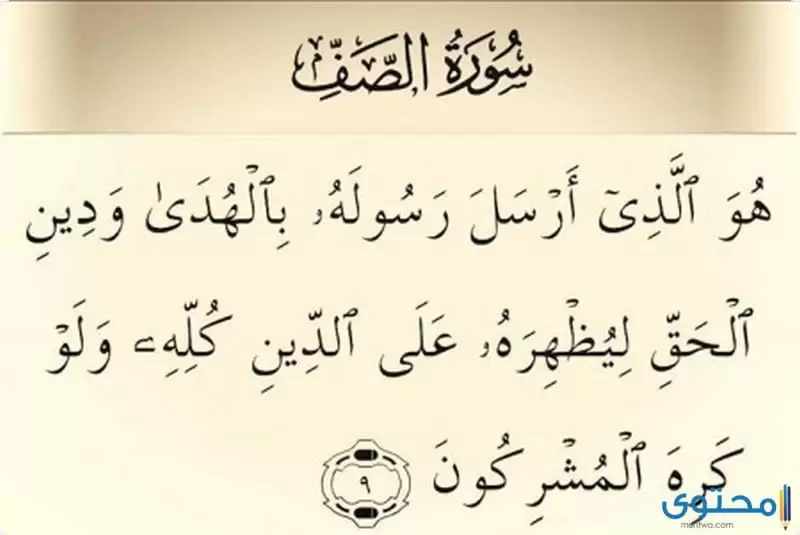 سُورَةُ الصَّفِّ
هُوَ ٱلَّذِىٓ أَرْسَلَ رَسُولَهُۥ بِٱلْهُدَىٰ وَدِينِ
ٱلْحَقِّ لِيُظْهِرَهُۥ عَلَى ٱلدِّينِ كُلِّهِۦ وَلَوْ
كَرِهَ ٱلْمُشْرِكُونَ ٩
محتوى
muhtwa.com